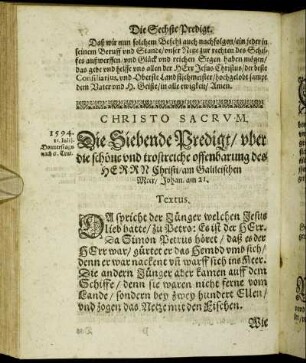 Die Sechste Predigt.
Daß wir nun solchem Befehl auch nachfolgen / ein jeder in
seinem Beruff vnd Stande / vnser Netz zur rechten des Schif-
fes außwerffen / vnd Glück vnd reichen Segen haben mögen /
das gebe vnd helffe vns allen der HErr Jesus Christus / der beste
Consiliarius, vnd Oberste Landfischmeister / hochgelobt sampt
dem Vater vnd H. Geiste / in alle ewigkeit / Amen.
CHRISTO SACRVM.
1594.
11. Julij.
Donnerstag
nach 6. Trin.
Die Siebende Predigt / vber
die schöne vnd trostreiche offenbarung des
HERRN Christi / am Galileischen
Meer / Johan. am 21.
Textus.
DA spricht der Jünger welchen Jesus
lieb hatte / zu Petro: Es ist der HErr.
Da Simon Petrus höret / daß es der
HErr war / gürtet er das Hembd vmb sich /
denn er war nackent vñ warff sich ins Meer.
Die andern Jünger aber kamen auff dem
Schiffe / denn sie waren nicht ferne vom
Lande / sondern bey zwey hundert Ellen /
vnd zogen das Netze mit den Fischen.
Wie